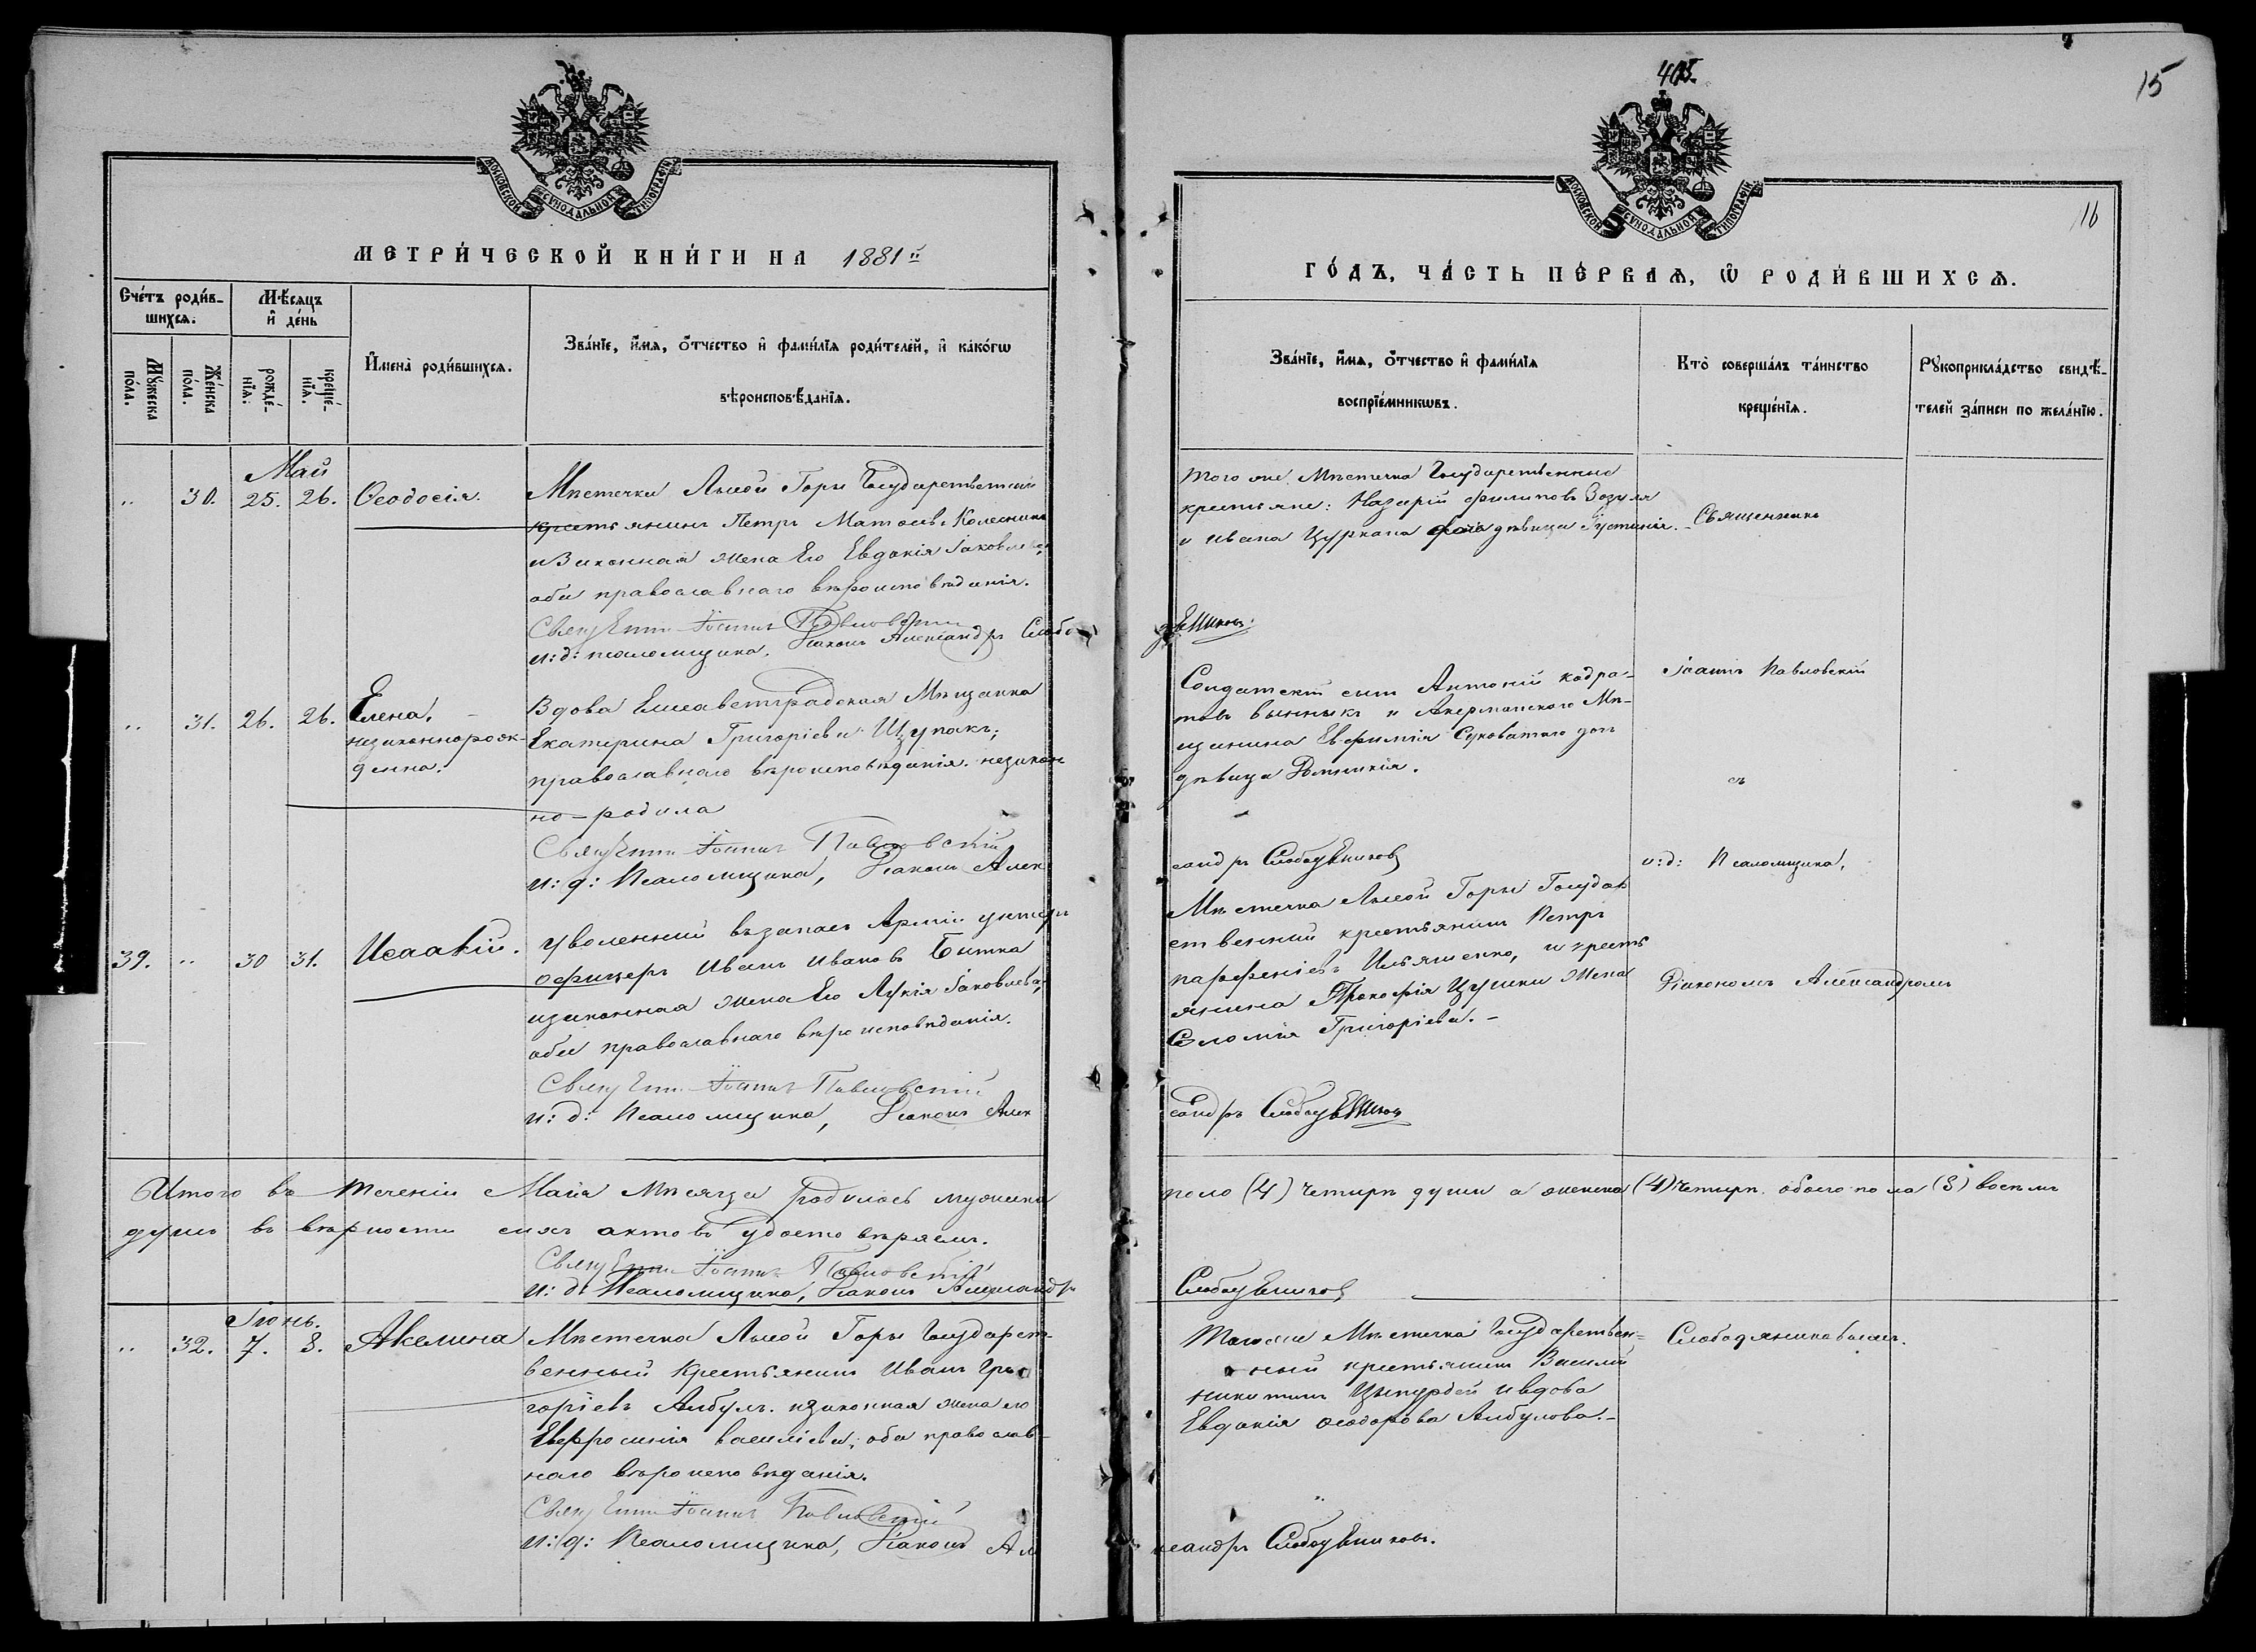 405.
15
16
МОСКОВСКОЙ СѴНОДАЛЬНОЙ ТИПОГРАФІИ
МЕТРИ́ЧЕСКОЙ КНИ́ГИ НА 1881й
Сче́тъ роди́вшихся.
Мѣ́сяцъ и҆ де́нь
И҆мена̀ роди́вшихся.
Зва́нїе, и҆́мя, ѻ҆́тчество и҆ фами́лїя роди́телей, и҆ како́гѡ
вѣроисповѣ́данїя.
Мꙋ́жеска по́ла.
Же́нска по́ла.
рожде́нїя.
креще́нїя.
Май
.. 30. 25. 26. Ѳеодосія.
Мѣстечка Лысой Горы Государственный
крестьянинъ Петръ Матѳеевъ Колесникъ
и законная жена Его Евдокія Іаковлева,
оба православнаго вѣроисповѣданія.
Священникъ Іоаннъ Павловскій
и: д: псаломщика, Діаконъ Александръ Слобо
.. 31. 26. 26. Елена,
незаконнорож-
денна.
Вдова Елисаветградская Мѣщанка
Екатерина Григоріева Щупакъ;
православнаго вѣроисповѣданія. незакон
но-родила
Священникъ Іоаннъ Павловскій
и: д: Псаломщика, Діаконъ Алек
39. .. 30 31. Исаакій.
Уволенный въ запасъ Арміи унтеръ
офицеръ Иванъ Ивановъ Битка
и законная жена Его Лукія Іаковлева,
обое православнаго вѣроисповѣданія.
Священникъ Іоаннъ Павловскій
и: д: Псаломщика, Діаконъ Алек
Итого въ теченіи Маія Мѣсяца родилось мужеска
душъ въ вѣрности сихъ актовъ удостовѣряемъ.
Священникъ Іоаннъ Павловскій
и: д: Псаломщика, Діаконъ Александръ
Іюнь.
.. 32. 7. 8. Акелина
Мѣстечка Лысой Горы Государст-
венный Крестьянинъ Иванъ Гри
горіевъ Албулъ. и законная жена его
Евфросинія Василіева, оба православ-
наго вѣроисповѣданія.
Священникъ Іоаннъ Павловскій
и: д: Псаломщика, Діаконъ Ал
МОСКОВСКОЙ СѴНОДАЛЬНОЙ ТИПОГРАФІИ
ГО́ДЪ, ЧА́СТЬ ПЕ́РВАЯ, Ѿ РОДИ́ВШИХСЯ.
Зва́нїе, и҆́мя, ѻ҆́тчество и҆ фами́лїя
воспрїе́мникѡвъ.
Кто̀ соверша́лъ та́инство
креще́нїя.
Рꙋкоприкла́дство свидѣ́-
телей за́писи по жела́нїю.
того же Мѣстечка Государственные
крестьяне: Назарій Филиповъ Зозуля
и Ивана Цуркана дочь дѣвица Іустинія. -
Священникъ
дѣниковъ.
Солдатскій сынъ Антоній Кодра-
товъ и Акерманского Мѣ-
щанина Евфимія Суховатаго дочь
дѣвица Домникія.
Іоаннъ Павловскій
съ
сандръ Слободяниковъ
и: д: Псаломщика,
Мѣстечка Лысой Горы Государ
ственный крестьянинъ Петръ
Парфеніевъ Ильяшенко, и кресть
янина Прокофія Цушки жена
Соломія Григоріева. -
Діакономъ Александромъ
сандръ Слободяниковъ
пола (4) четыре души а женска (4) четыре. обоего пола (8) восемъ
Слободяниковъ
Того же Мѣстечка Государствен-
ный крестьянинъ Василій
Никитинъ и вдова
Евдокія Ѳеодорова Албулова. -
Слободяниковымъ.
ександръ Слободяниковъ.